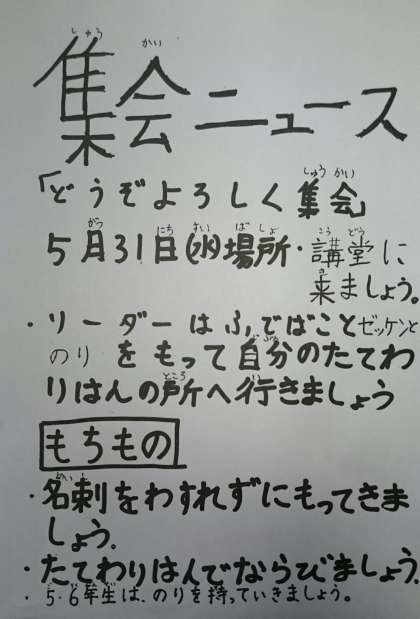 集会ニュース
「どうぞよろしく集会」
5月31日(水)場所・講堂に
来ましょう。
・リーダーはふでばことゼッケンと
のりをもって自分のたてわ
りはんの所へ行きましょう
もちもの
・名刺をわすれずにもってきま
しょう。
・たてわりはんでならびましょう。
・5・6年生は、のりを持っていきましょう。